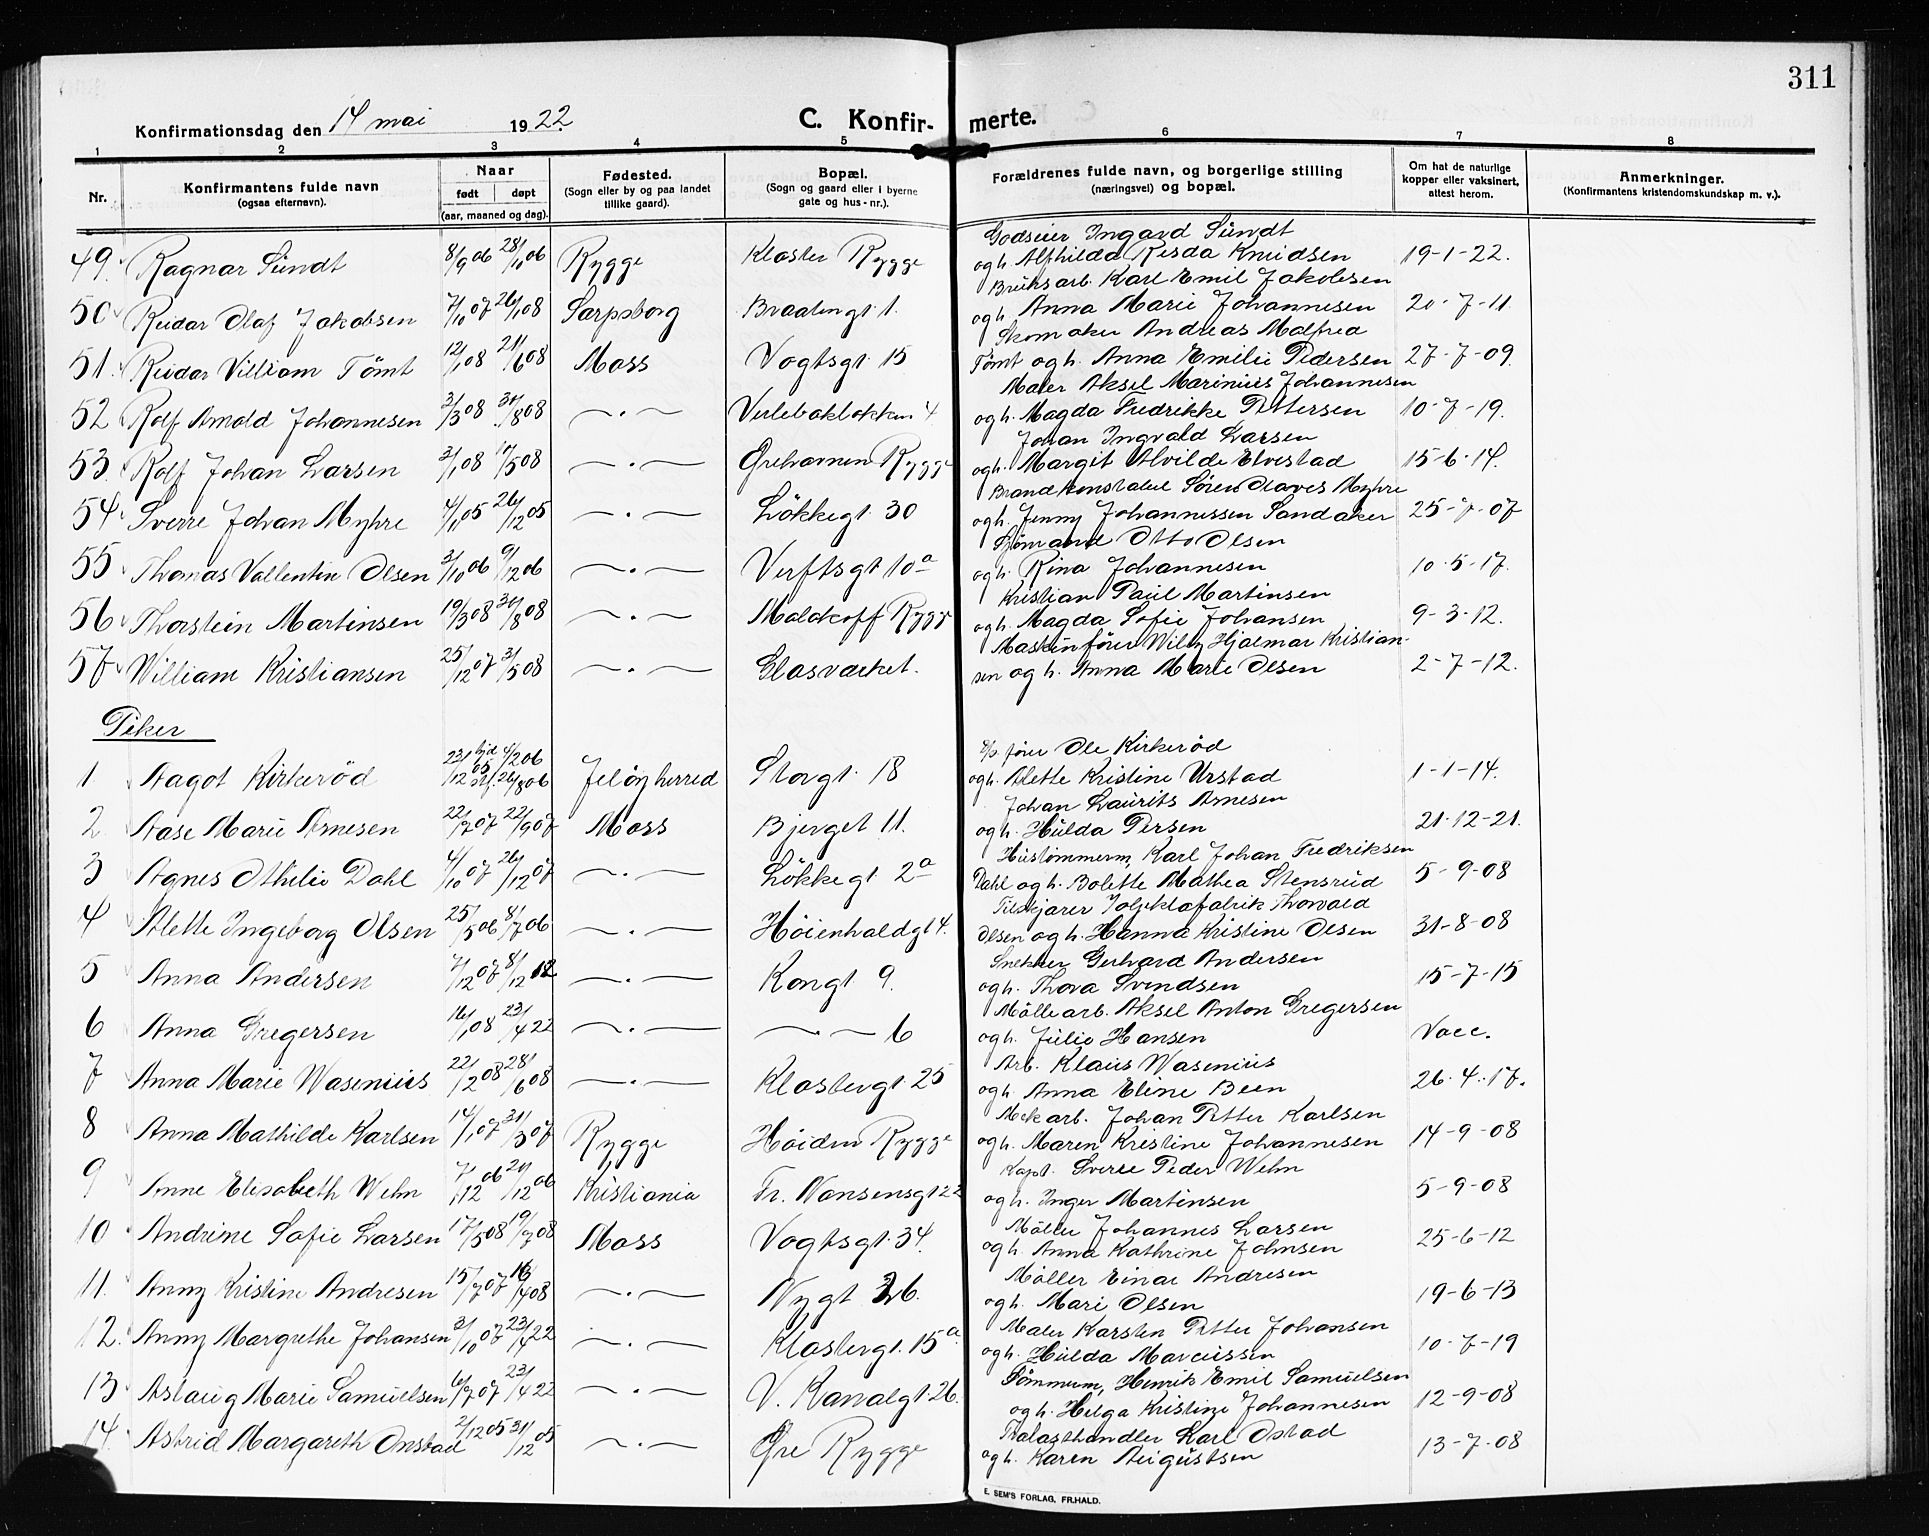 311
Konfirmationsdag den 14 mai 1922. C. Konfir- merte.
1 2 3 4 5 6 7 8
Nr. Konfirmantens fulde navn (ogsaa efternavn). Naar født døpt (aar, maaned og dag). Fødested. (Sogn eller by og paa landet tillike gaard). Bopæl. (Sogn og gaard eller i byerne gate og hus-nr.). Forældrenes fulde navn, og borgerlige stilling (næringsvei) og bopæl. Om hat de naturlige kopper eller vaksinert, attest herom. Anmerkninger. (Konfirmantens kristendomskundskap m. v.).
Godseier Ingard Sundt
49. Ragnar Sundt 8/9 06 28/10 06 Rygge Kloster Rygge og h. Alfhilda Resda Knudsen 19-1-22.
Bruksarb. Karl Emil Jakobsen
50 Reidar Olaf Jakobsen 7/10 07 26/1 08 Sarpsborg Braatengt. 1. og h. Anna Marie Johannesen 20-7-11
Skomaker Andreas Malfred
51. Reidar Villiam Tömt 12/1 08 21/6 08 Moss Vogtsgt. 15 Tömt og h. Anna Emilie Pedersen 27-7-09.
Maler Aksel Marinius Johannesen
52 Rolf Arnold Johannesen 31/3 08 30/8 08 —·— Verlebakløkken 4 og h. Magda Fredrikke Pettersen 10-7-19.
Johan Ingvald Larsen
53. Rolf Johan Larsen 3/1 08 17/5 08 —·— Ørehavnen Rygge og h. Margit Alvilde Elvestad 15-6-14.
Brandkonstabel Sören Olaves Myhre
54. Sverre Johan Myhre 4/1 05 26/12 05 —·— Løkkegt. 30 og h. Jenny Johannessen Sandaker 25-7-07
Sjömand Otto Olsen
55 Thomas Vallentin Olsen 3/10 06 9/12 06 —·— Verftsgt 10a og h. Rina Johannesen 10-5-17.
Kristian Paul Martinsen
56 Thorstein Martinsen 19/3 08 30/8 08 —·— Malakoff Rygge og h. Magda Sofie Johansen 9-3-12.
Maskinfører Willy Hjalmar Kristian-
57 William Kristiansen 25/12 07 31/5 08 —·— Glasværket. sen og h. Anna Marie Olsen 2-7-12.
Piker
fører Ole Kirkerød
1 Aagot Kirkerød 23/12 05 hjd 4/2 06 stf. 26/8 06 Jeløy herred Storgt. 18 og h. Alette Kristine Urstad 1-1-14.
Johan Laurits Arnesen
2 Aase Marie Arnesen 22/7 07 22/9 07 Moss Bjerget 11. og h. Hulda Persen 21-12-21.
Hustømmerm, Karl Johan Fredriksen
3 Agnes Othilie Dahl 4/10 07 26/12 07 —·— Løkkegt 2a Dahl og h. Bolette Mathea Stensrud 5-9-08
Tilskjærer Thorvald
4 Alette Ingeborg Olsen 25/5 06 8/7 06 —·— Høienhaldgt 4. Olsen og h. Hanna Kristine Olsen 31-8-08
Snekker Gerhard Andersen
5 Anna Andersen 7/12 07 8/12 12 —·— Kongt 9. og h. Thora Svendsen 15-7-15
Möllearb. Aksel Anton Gregersen
6 Anna Gregersen 16/1 08 23/4 22 —·— —·— 6 og h. Julie Hansen Vacc.
Arb. Klaus Wasenius
7 Anna Marie Wasenius 22/2 08 28/6 08 —·— Klostergt. 25 og h. Anna Eline Been 26.4.17.
Mek arb. Johan Petter Karlsen
8 Anna Mathilde Karlsen 14/1 07 31/3 07 Rygge Høiden Rygge og h. Maren Kristine Johannesen 14-9-08
Kapt. Sverre Peder Wehn
9 Anne Elisabeth Wehn 7/12 06 29/12 06 Kristiania Fr. Nansensgt 22 og h. Inger Martinsen 5-9-08
Möller Johannes Larsen
10 Andrine Sofie Larsen 17/5 08 19/7 08 Moss Vogtsgt. 34. og h. Anna Kathrine Johnsen 25-6-12
Möller Einar Andresen
11. Anny Kristine Andresen 15/7 07 16/4 08 —·— Nygt 26. og h. Mari Olsen 19-6-13
Maler Karsten Petter Johansen
12. Anny Margrethe Johansen 3/10 07 23/4 22 —·— Klostergt. 15a. og h. Hulda Marcussen 10-7-19
Tömmerm, Henrik Emil Samuelsen
13 Aslaug Marie Samuelsen 6/7 07 23/4 22 —·— V. Kanalgt 26. og h. Helga Kristine Johannesen 12-9-08
Trælasthandler Karl Ostad
14. Astrid Margareth Onstad 2/12 05 31/12 05 —·— Øre Rygge og h. Karen Augustsen 13-7-08
E. SEM'S FORLAG, FR.HALD.